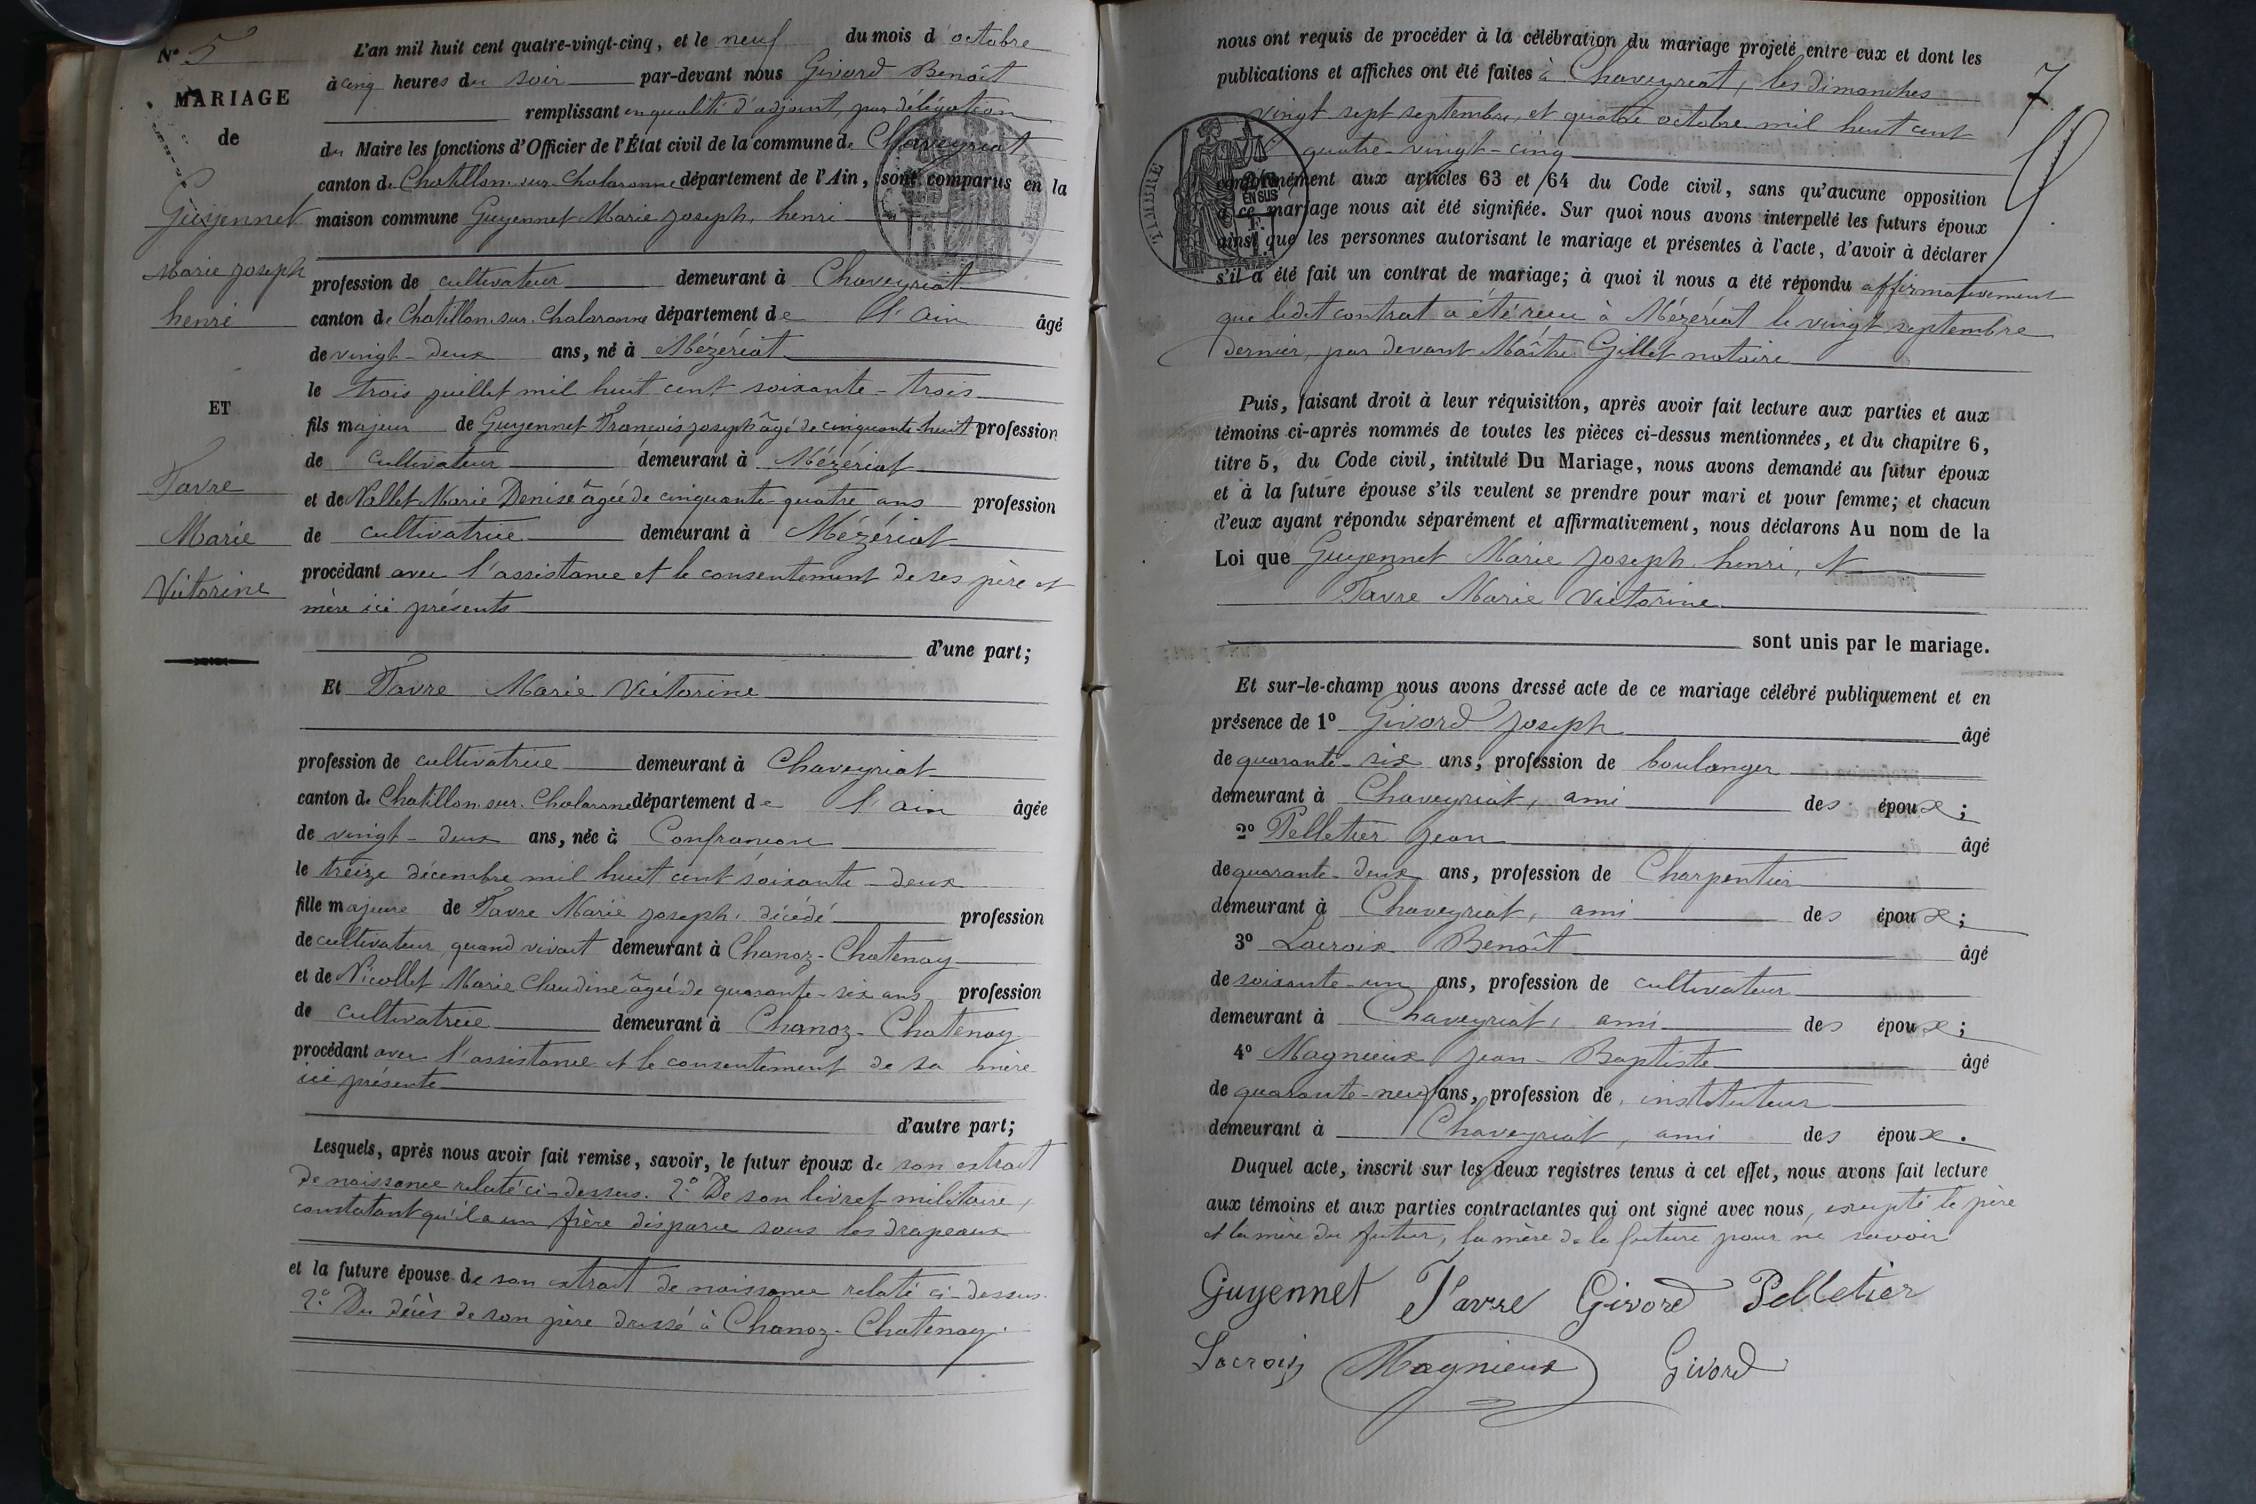 N° 5
MARIAGE
de
Guyennet
Marie Joseph
henri
ET
Favre
Marie
Victorine
L'an mil huit cent quatre-vingt-cinq, et le neuf du mois d'octobre
à cinq heures du soir par-devant nous Givord Benoît
remplissant en qualité d'adjoint, par délégation
du Maire les fonctions d'Officier de l'État civil de la commune de Chaveyriat
canton de Chatillon-sur-Chalaronne département de l'Ain, sont comparus en la
maison commune Guyennet Marie Joseph, henri
profession de cultivateur demeurant à Chaveyriat
canton de Chatillon-sur-Chalaronne département de l'ain âgé
de vingt-deux ans, né à Mézériat
le trois juillet mil huit cent soixante-trois
fils majeur de Guyennet François Joseph âgé de cinquante-huit profession
de cultivateur demeurant à Mézériat
et de Nallet Marie Denise âgée de cinquante-quatre ans profession
de cultivatrice demeurant à Mézériat
procédant avec l'assistance et le consentement de ses père et
mère ici présents
d'une part;
Et Favre Marie Victorine
profession de cultivatrice demeurant à Chaveyriat
canton de Chatillon-sur-Chalaronne département de l'ain âgée
de vingt-deux ans, née à Confrançon
le treize décembre mil huit cent soixante-deux
fille majeure de Favre Marie Joseph, décédé profession
de cultivateur, quand vivait demeurant à Chanoz-Chatenay
et de Nicollet Marie Claudine âgée de quarante-six ans profession
de cultivatrice demeurant à Chanoz-Chatenay
procédant avec l'assistance et le consentement de sa mère
ici présente
d'autre part;
Lesquels, après nous avoir fait remise, savoir, le futur époux de son extrait
de naissance relaté ci-dessus. 2° De son livret militaire,
constatant qu'il a un frère disparu sous les drapeaux
et la future épouse de son extrait de naissance relaté ci-dessus.
2° Du décès de son père dressé à Chanoz-Chatenay.
nous ont requis de procéder à la célébration du mariage projeté entre eux et dont les
publications et affiches ont été faites à Chaveyriat, les dimanches
vingt sept septembre, et quatre octobre mil huit cent
quatre-vingt-cinq
7
TIMBRE
EN SUS
conformément aux articles 63 et 64 du Code civil, sans qu'aucune opposition
à ce mariage nous ait été signifiée. Sur quoi nous avons interpellé les futurs époux
ainsi que les personnes autorisant le mariage et présentes à l'acte, d'avoir à déclarer
s'il a été fait un contrat de mariage; à quoi il nous a été répondu affirmativement
que ledit contrat a été reçu à Mézériat le vingt septembre
dernier, par devant Maître Gillet notaire
Puis, faisant droit à leur réquisition, après avoir fait lecture aux parties et aux
témoins ci-après nommés de toutes les pièces ci-dessus mentionnées, et du chapitre 6,
titre 5, du Code civil, intitulé Du Mariage, nous avons demandé au futur époux
et à la future épouse s'ils veulent se prendre pour mari et pour femme; et chacun
d'eux ayant répondu séparément et affirmativement, nous déclarons Au nom de la
Loi que Guyennet Marie Joseph henri, et
Favre Marie Victorine
sont unis par le mariage.
Et sur-le-champ nous avons dressé acte de ce mariage célébré publiquement et en
présence de 1° Givord Joseph âgé
de quarante-six ans, profession de boulanger
demeurant à Chaveyriat, ami des époux;
2° Pelletier Jean âgé
de quarante-deux ans, profession de Charpentier
demeurant à Chaveyriat, ami des époux;
3° Lacroix Benoît âgé
de soixante-un ans, profession de cultivateur
demeurant à Chaveyriat, ami des époux;
4° Magnieux Jean-Baptiste âgé
de quarante-neuf ans, profession de instituteur
demeurant à Chaveyriat, ami des époux.
Duquel acte, inscrit sur les deux registres tenus à cet effet, nous avons fait lecture
aux témoins et aux parties contractantes qui ont signé avec nous, excepté le père
et la mère du futur, la mère de la future pour ne savoir
Guyennet Favre Givord Pelletier
Lacroix Magnieux Givord